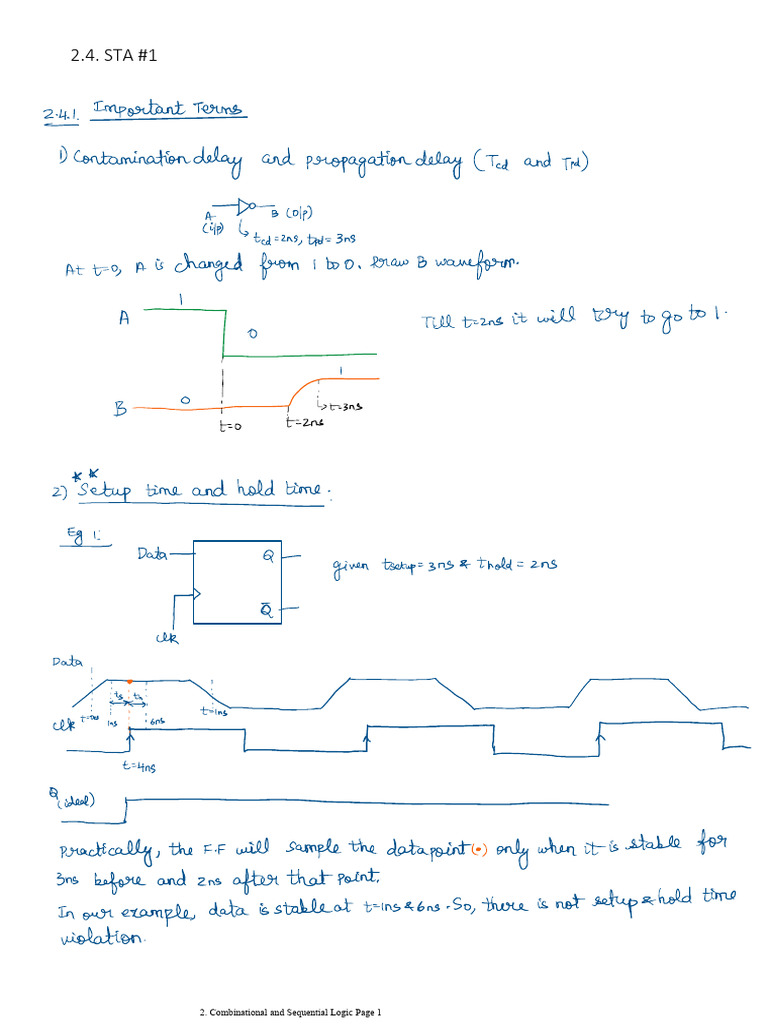 2.4. STA #1
2.4.1. Important Terms
1) Contamination delay and propagation delay (Tcd and Tpd)
A B (O/P)
(i/p)
tcd = 2ns, tpd = 3ns
At t=0, A is changed from 1 to 0. Draw B waveform.
1
A
0
Till t=2ns it will try to go to 1.
1
B 0
t=3ns
t=0 t=2ns
**
2) Setup time and hold time:
Eg 1:
Data Q
given tsetup = 3ns & thold = 2ns
Q̄
clk
Data
ts th
clk 1ns 6ns t=1ns
t=4ns
Q (ideal)
Practically, the F.F will sample the data point (•) only when it is stable for
3ns before and 2ns after that point.
In our example, data is stable at t=1ns & 6ns. So, there is not setup & hold time
violation.
2. Combinational and Sequential Logic Page 1